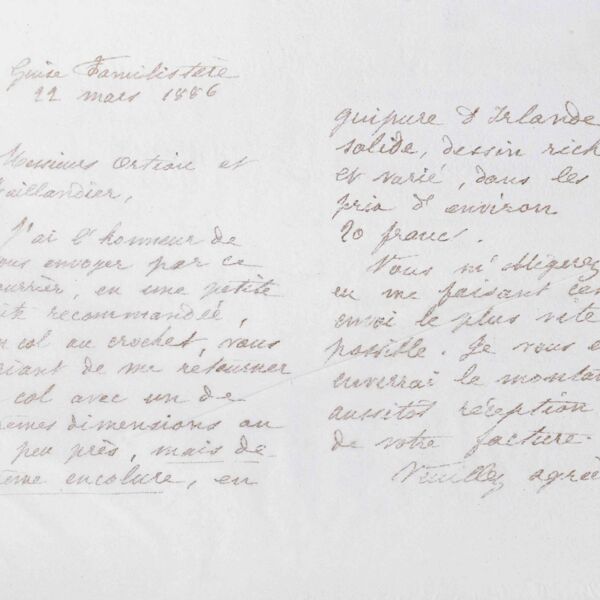 Guise Familistère
22 mars 1886
Messieurs Ortion et
Taillandier,
J'ai l'honneur de
vous envoyer par ce
courrier, en une petite
boîte recommandée,
un col au crochet, vous
priant de me retourner
ce col avec un de
mêmes dimensions ou
à peu près, mais de
même encolure, en
guipure d'Irlande
solide, dessin rich
et varié, dans les
prix d'environ
20 francs.
Vous m'obligerez
en me faisant cet
envoi le plus vite
possible. Je vous e
enverrai le montan
aussitôt réception
de votre facture.
Veuillez agré